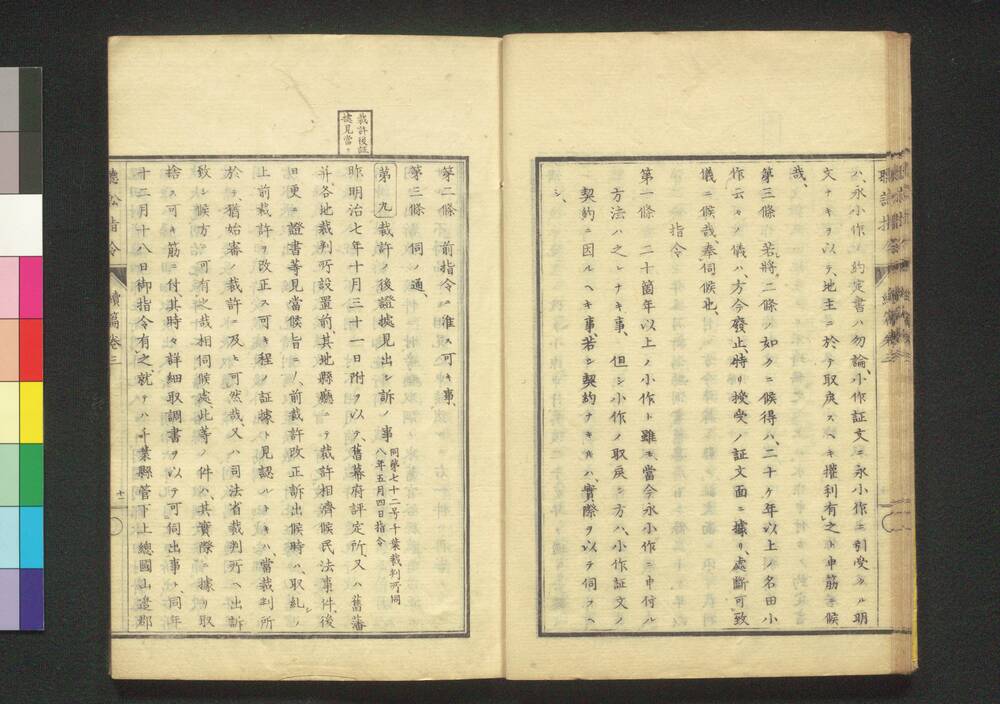 ハ、永小作ノ約定書ハ勿論、小作証文ニ永小作ニ引受タル明
文ナキヲ以テ、地主ニ於テ取戻スヘキ權利有之ト申筋ニ候
哉、
第三條 若將二條ノ如クニ候得ハ、二十ケ年以上ノ名田小
作云々ノ儀ハ、方今廢止、特リ授受ノ証文面ニ據リ、處斷可致
儀ニ候哉、奉伺候也、
指令
第一條 二十箇年以上ノ小作ト雖モ當今永小作ニ申付ル
方法ハ之レナキ事、但シ小作ノ取戻シ方ハ、小作証文ノ
契約ニ因ルヘキ事、若シ契約ナキキハ、實際ヲ以テ伺フヘ
シ、
第二條 前指令ニ准ス可キ事、
第三條 伺ノ通、
裁許後証
據見當
第九 裁許ノ後證據見出シ訴ノ事 同第七十二号千葉裁判所伺
八年五月四日指令
昨明治七年十月三十一日附ヲ以テ、舊幕府評定所、又ハ舊藩
并各地裁判所設置前其地縣廳ニテ裁許相濟候民法事件、後
日更ニ證書等見當候旨ニ、前裁許改正訴出候時ハ、取糺シノ
上前裁許ヲ改正ス可キ程ノ証據ト見認ルトキハ、當裁判所
於テ、猶始審ノ裁許ニ及ヒ可然哉、又ハ司法省裁判所ヘ出訴
致シ候方ニ可有之哉相伺候處、此等ノ件ハ、其實際ニ據リ取
捨ス可キ筋ニ付、其時々詳細取調書ヲ以テ可伺出事ト、同年
十二月十八日御指令有之、就テハ千葉縣管下上總國山邊郡
聽訟指令 續篇卷三 十一